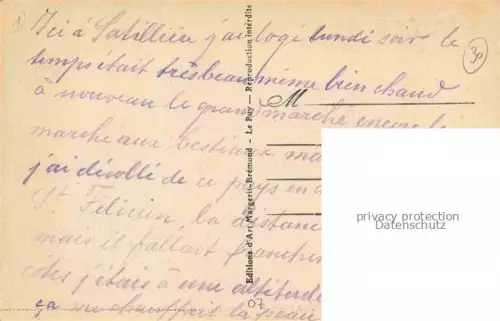 Ici à Satillieu j'ai logé lundi soir le
temps était très beau même bien chaud
à nouveau le grand marché encore le
marche aux bestiaux ma
j'ai décollé de ce pays en a
St Félicien, la distan
mais il fallait franchir
côtes j'étais à une altitude
ça me chauffait la peau
M
Editions d'Art Margerit-Brémond - Le Puy - Reproduction interdite
30
07
privacy protection
Datenschutz